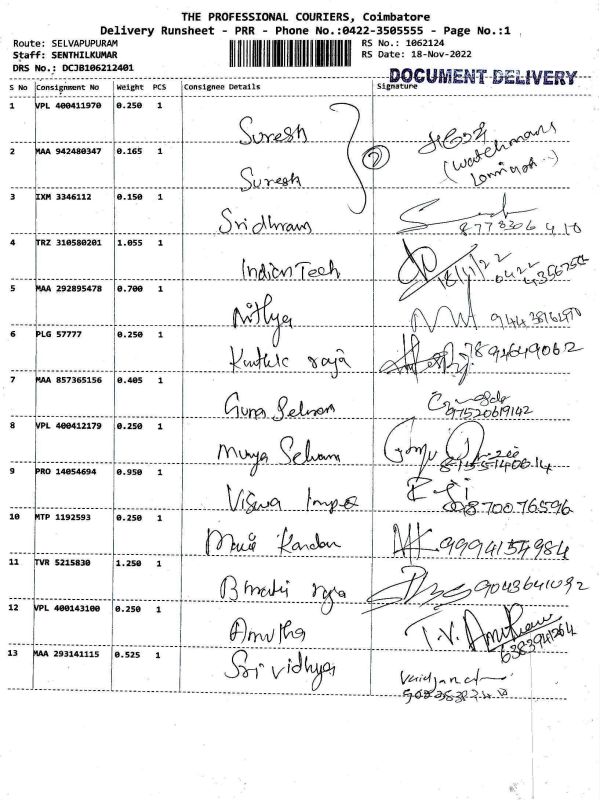 THE PROFESSIONAL COURIERS, Coimbatore
Delivery Runsheet - PRR - Phone No.:0422-3505555 - Page No.:1
Route: SELVAPUPURAM RS No.: 1062124
Staff: SENTHILKUMAR RS Date: 18-Nov-2022
DRS No.: DCJB106212401
DOCUMENT DELIVERY
S No Consignment No Weight PCS Consignee Details Signature
1 VPL 400411970 0.250 1 Suresh
(watchmans
2 MAA 942480347 0.165 1 Suresh
2
3 IXM 3346112 0.150 1 Sridhram
4 TRZ 310580201 1.055 1 Indian Tech 18/11/22 0422
5 MAA 292895478 0.700 1 Nithya
6 PLG 57777 0.250 1 Karthik raja 7894649062
7 MAA 857365156 0.405 1 Guna Selvam 97520619142
8 VPL 400412179 0.250 1 Muruga Selvam
9 PRO 14054694 0.950 1 Viswa Impex 8870076596
10 MTP 1192593 0.250 1 Kandan 9994154984
11 TVR 5215830 1.250 1 raja 9043641092
12 VPL 400143100 0.250 1 Amutha T.V. 6383941264
13 MAA 293141115 0.525 1 Sri vidhya